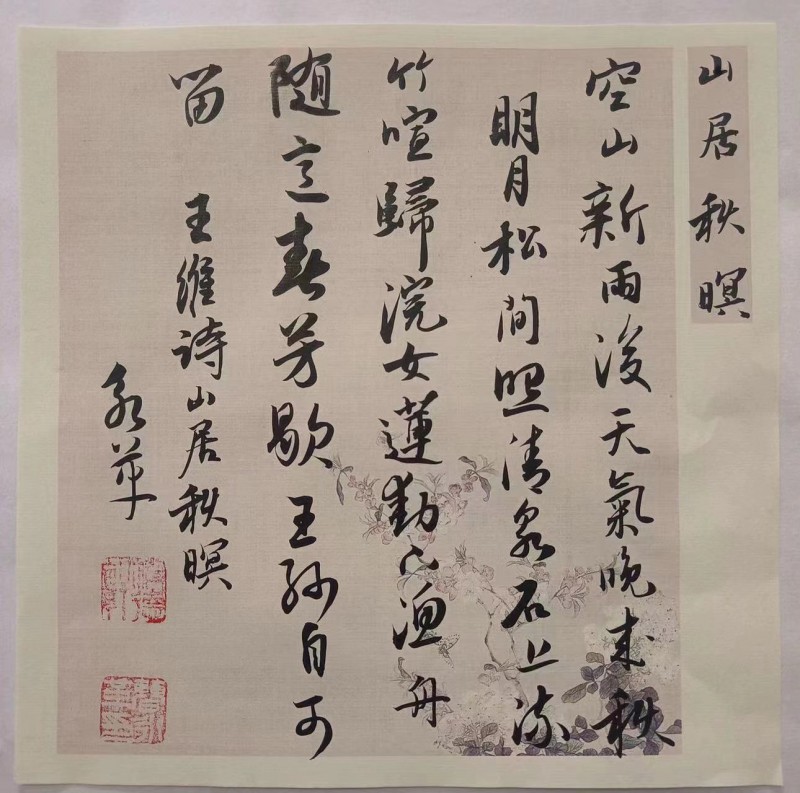 山居秋暝
空山新雨後天氣晚来秋
明月松間照清泉石上流
竹喧歸浣女蓮動下漁舟
随意春芳歇王孫自可
留 王維詩山居秋暝
永苹